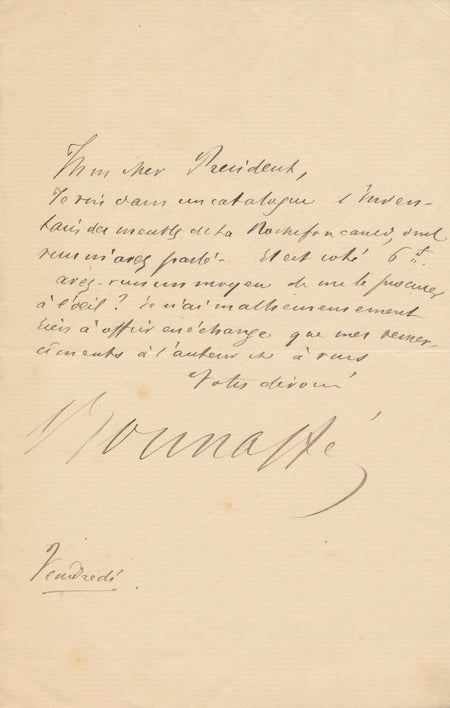 Mon cher Président,
Je vois dans un catalogue l'inven-
taire des meubles de La Rochefoucauld, dont
vous m'avez parlé. Il est coté 6 ft.
avez-vous un moyen de me le procurer
à l'œil? Je n'ai malheureusement
rien à offrir en échange que mes remer-
ciments à l'auteur et à vous
Votre dévoué
Bonnaffé
Vendredi